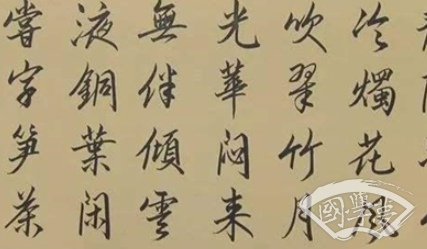 冷燭花
吹翠竹月
光華悶来
無伴傾雲
液銅葉閑
嘗字笋茶
國學